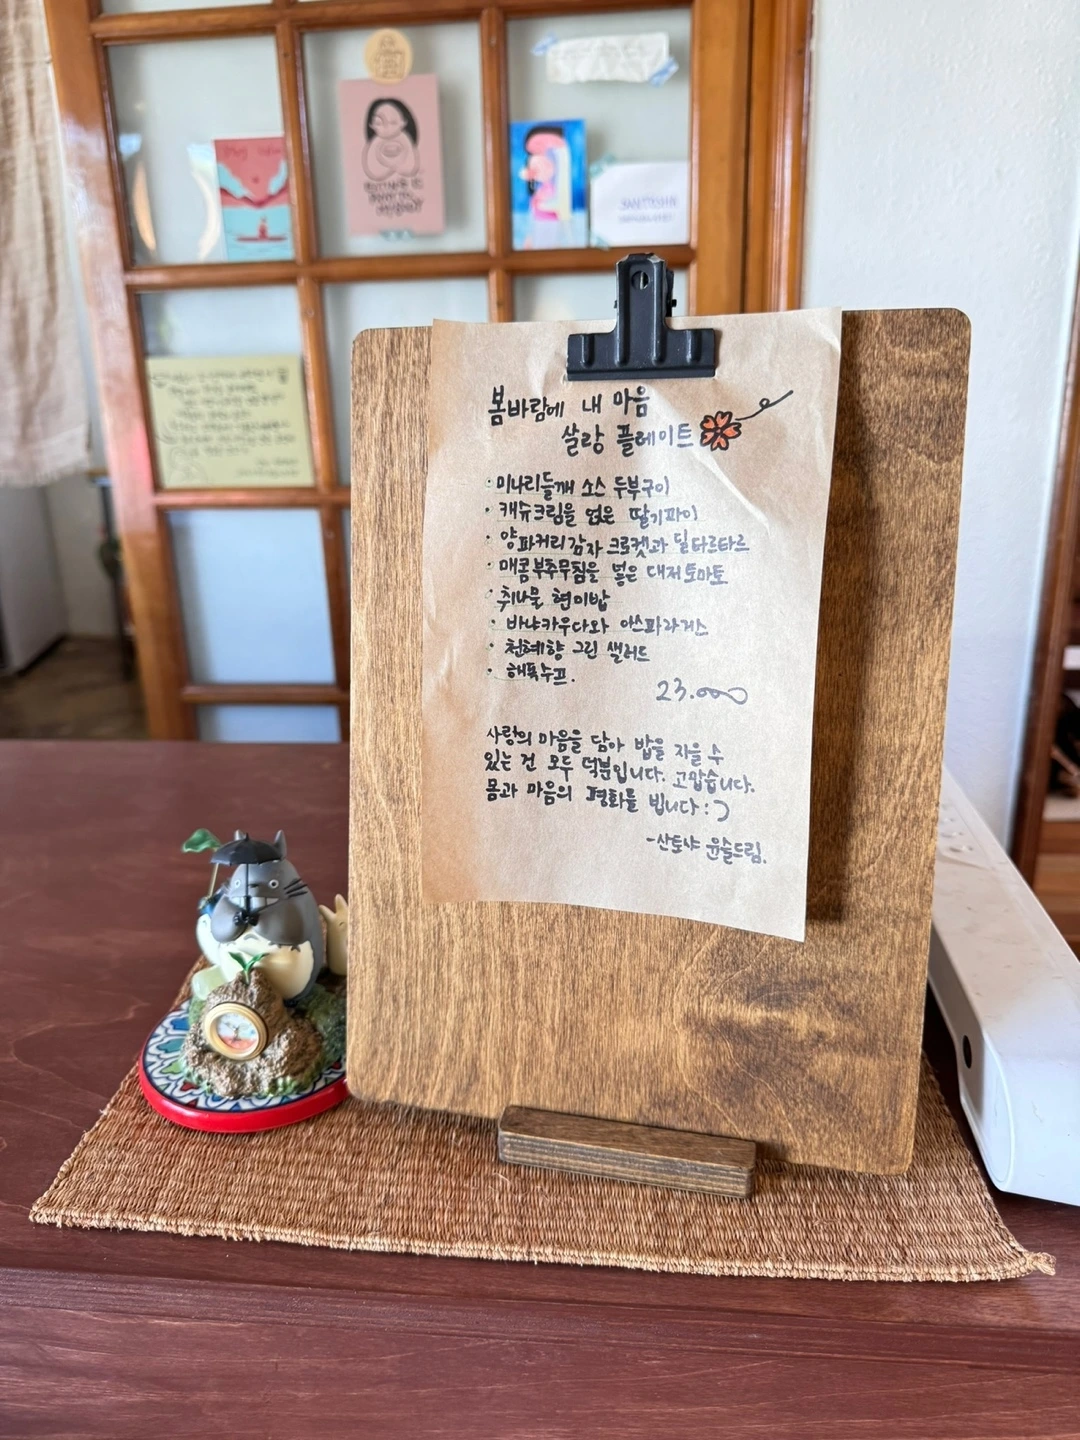 봄바람에 내 마음
살랑 플레이트
· 미나리들깨 소스 두부구이
· 캐슈크림을 얹은 딸기파이
· 양파커리감자 크로켓과 딜타르타르
· 매콤부추무침을 넣은 대저토마토
· 취나물 현미밥
· 바냐카우다와 아스파라거스
· 천혜향 그린 샐러드
· 해독수프.
23.000
사랑의 마음을 담아 밥을 지을 수
있는 건 모두 덕분입니다. 고맙습니다.
몸과 마음의 평화를 빕니다 :)
-산토샤 윤슬드림.